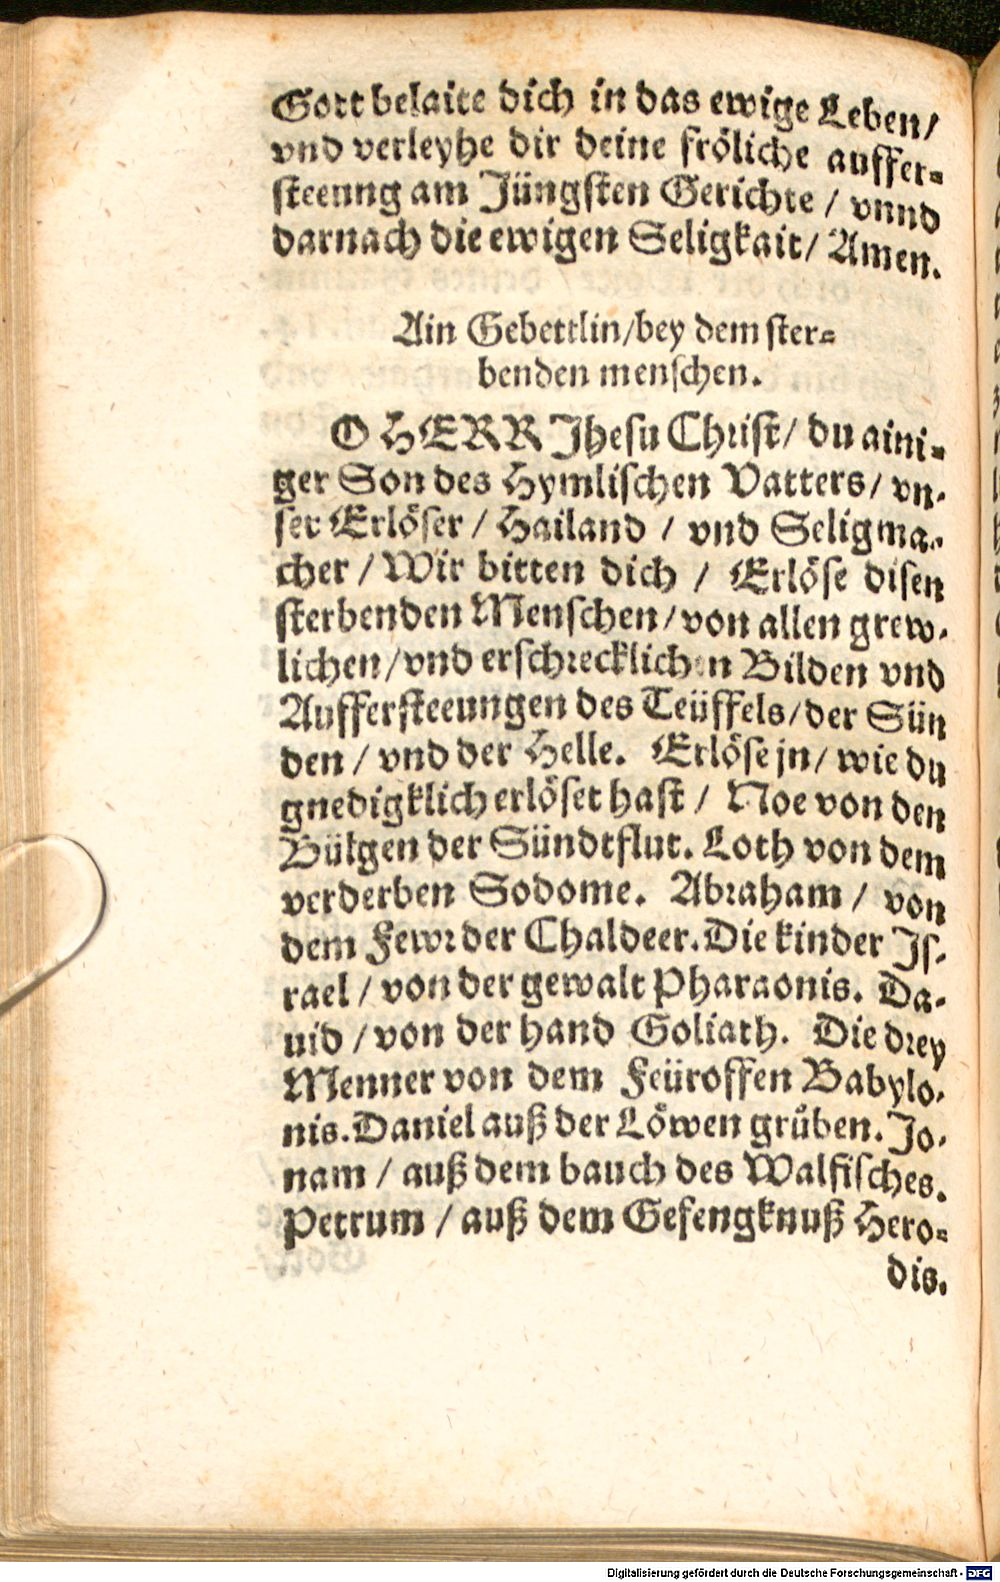 Gott belaite dich in das ewige Leben/
vnd verleyhe dir deine fröliche auffer⸗
steeung am Jüngsten Gerichte / vnnd
darnach die ewigen Seligkait/ Amen.
Ain Gebettlin/bey dem ster⸗
benden menschen.
O HERR Jhesu Christ/ du aini⸗
ger Son des Hymlischen Vatters/ vn⸗
ser Erlöser / Hailand / vnd Seligma⸗
cher / Wir bitten dich / Erlöse disen
sterbenden Menschen/von allen grew⸗
lichen/vnd erschrecklichen Bilden vnd
Auffersteeungen des Teüffels/der Sün
den / vnd der Helle. Erlöse jn/ wie du
gnedigklich erlöset hast / Noe von den
Bülgen der Sündtflut. Loth von dem
verderben Sodome. Abraham / von
dem Fewr der Chaldeer. Die kinder Js⸗
rael / von der gewalt Pharaonis. Da⸗
uid / von der hand Goliath. Die drey
Menner von dem Feüroffen Babylo⸗
nis. Daniel auß der Löwen grůben. Jo⸗
nam / auß dem bauch des Walfisches.
Petrum / auß dem Gefengknuß Hero⸗
dis.
Digitalisierung gefördert durch die Deutsche Forschungsgemeinschaft - DFG